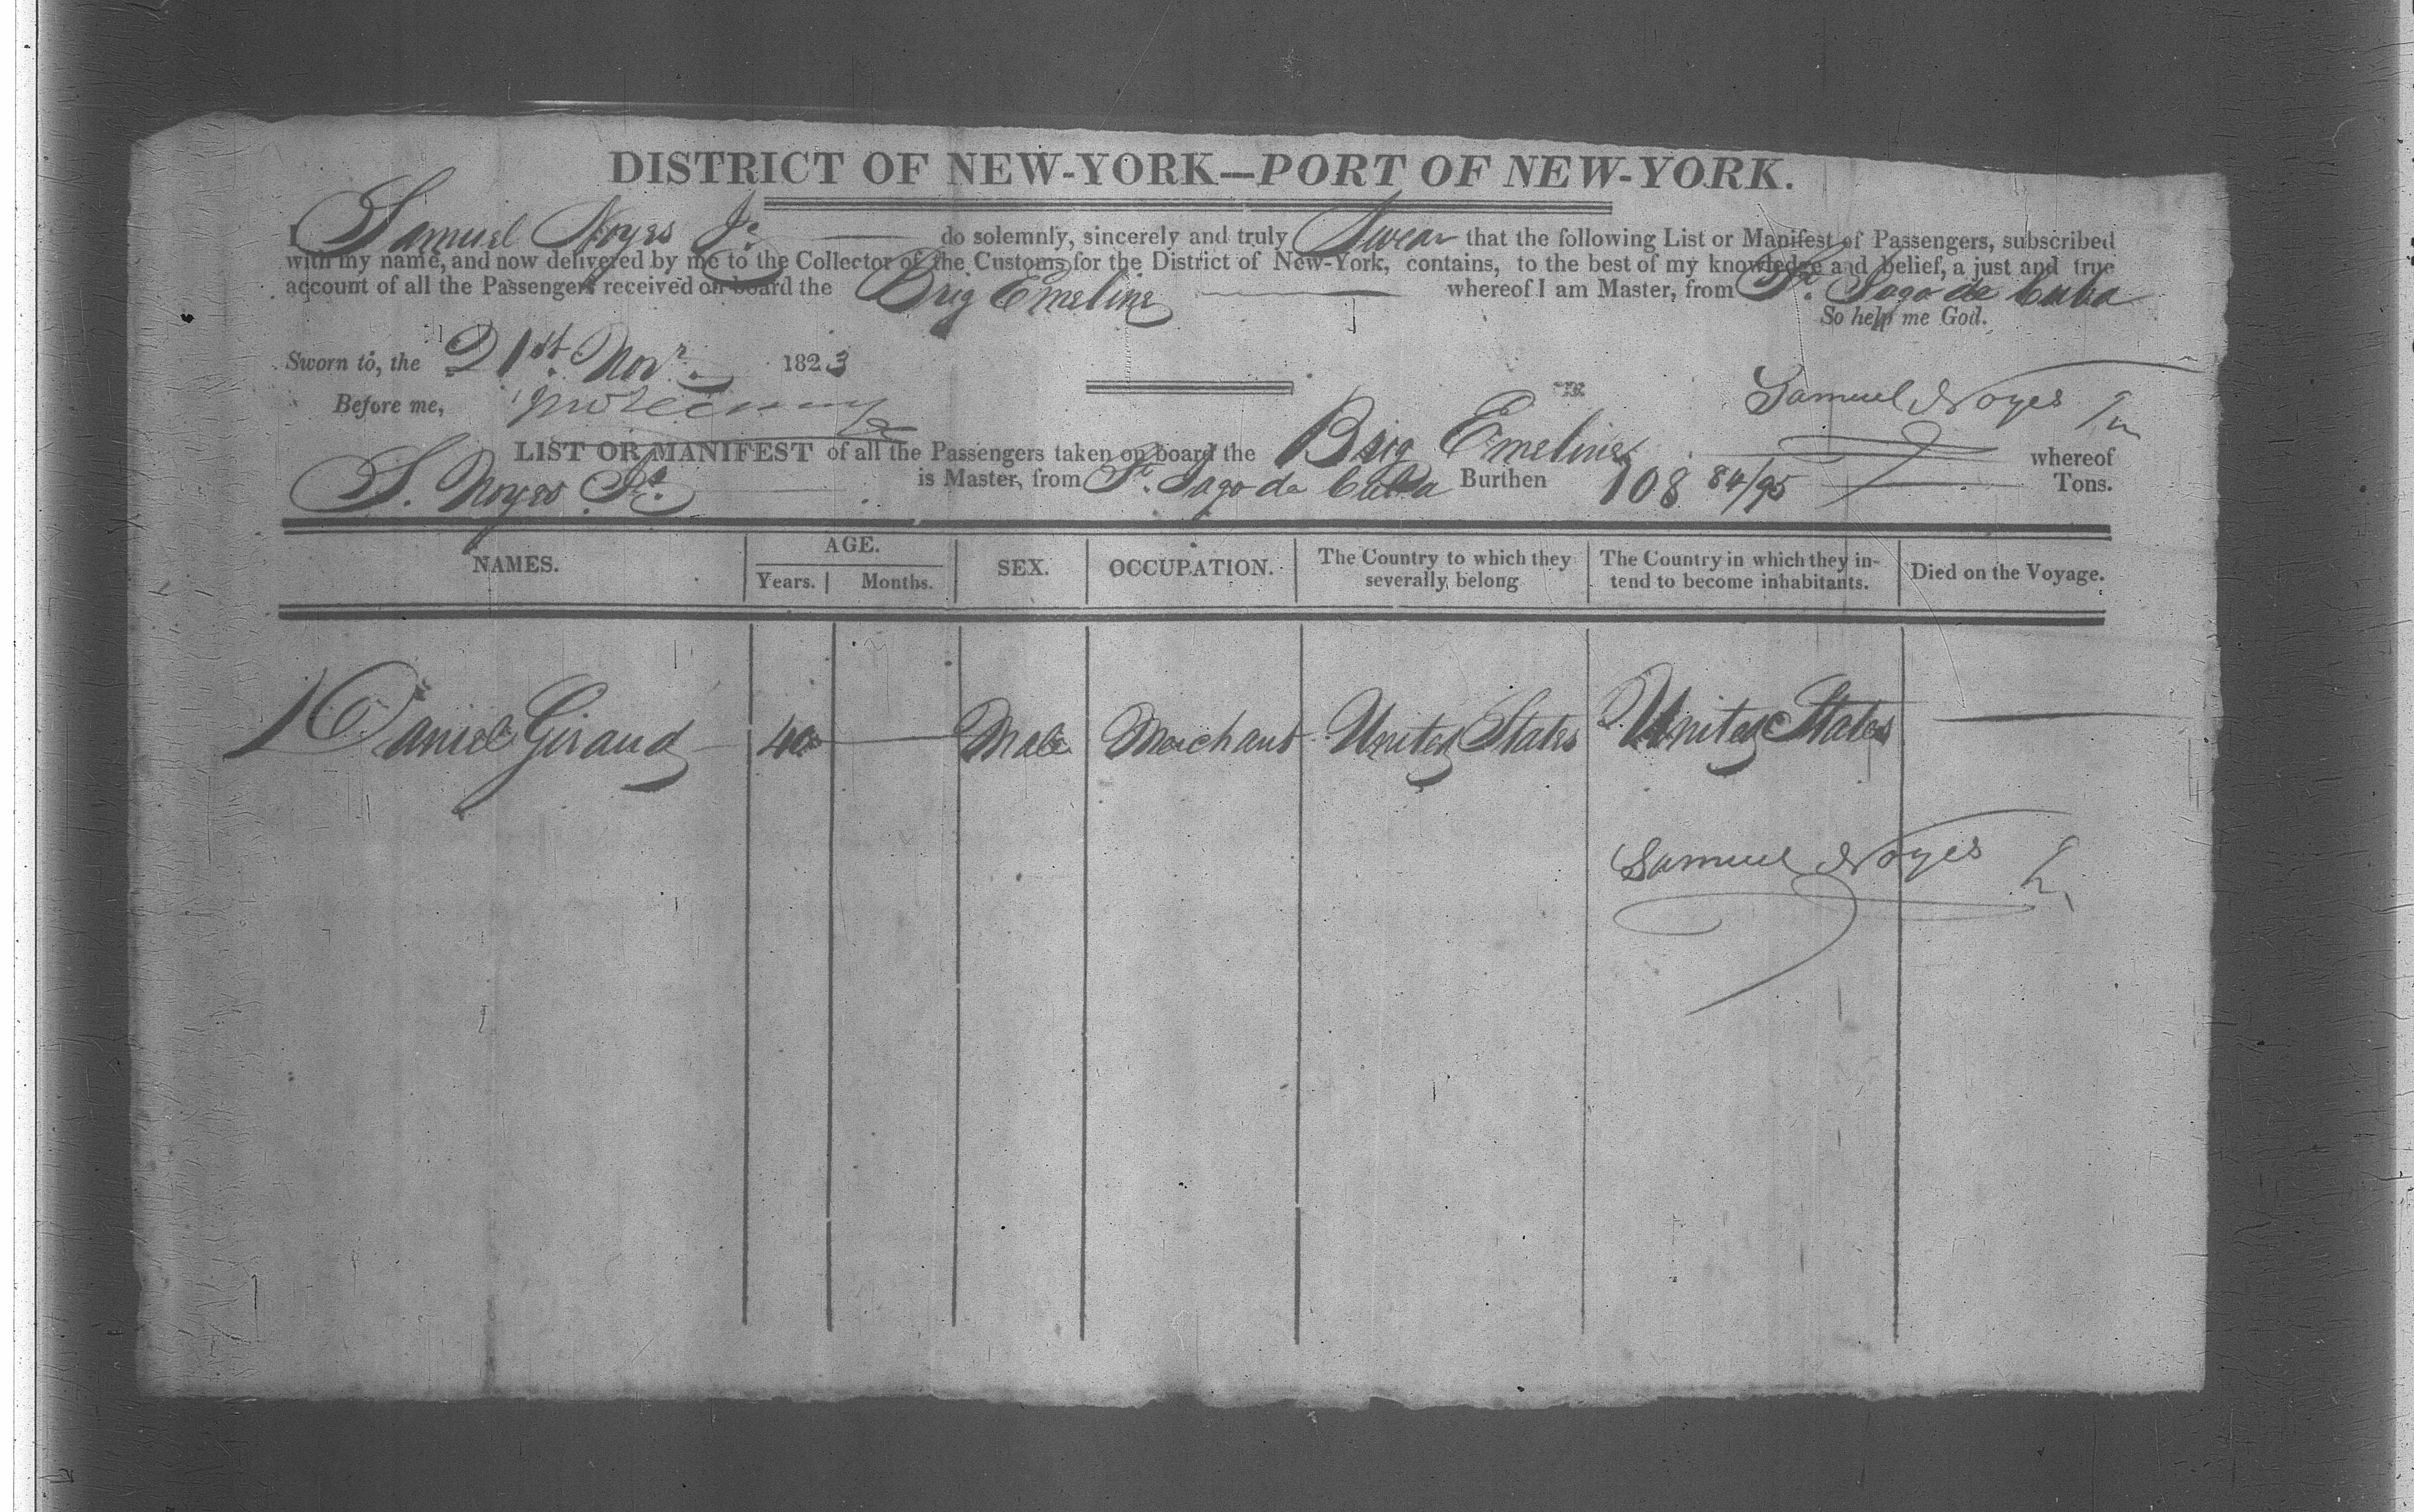 DISTRICT OF NEW-YORK—PORT OF NEW-YORK.
I Samuel Noyes Jr. do solemnly, sincerely and truly Swear that the following List or Manifest of Passengers, subscribed
with my name, and now delivered by me to the Collector of the Customs for the District of New-York, contains, to the best of my knowledge and belief, a just and true
account of all the Passengers received on board the Brig Emeline whereof I am Master, from St. Iago de Cuba
So help me God.
Sworn to, the 21st. Novr. 1823
Before me,
Samuel Noyes Jr
LIST OR MANIFEST of all the Passengers taken on board the Brig Emeline whereof
S. Noyes Jr. is Master, from St. Iago de Cuba Burthen 108 84/95 Tons.
NAMES. AGE. SEX. OCCUPATION. The Country to which they severally belong The Country in which they intend to become inhabitants. Died on the Voyage.
Years. Months.
1 Daniel Giraud 40 Male Merchant United States United States
Samuel Noyes Jr